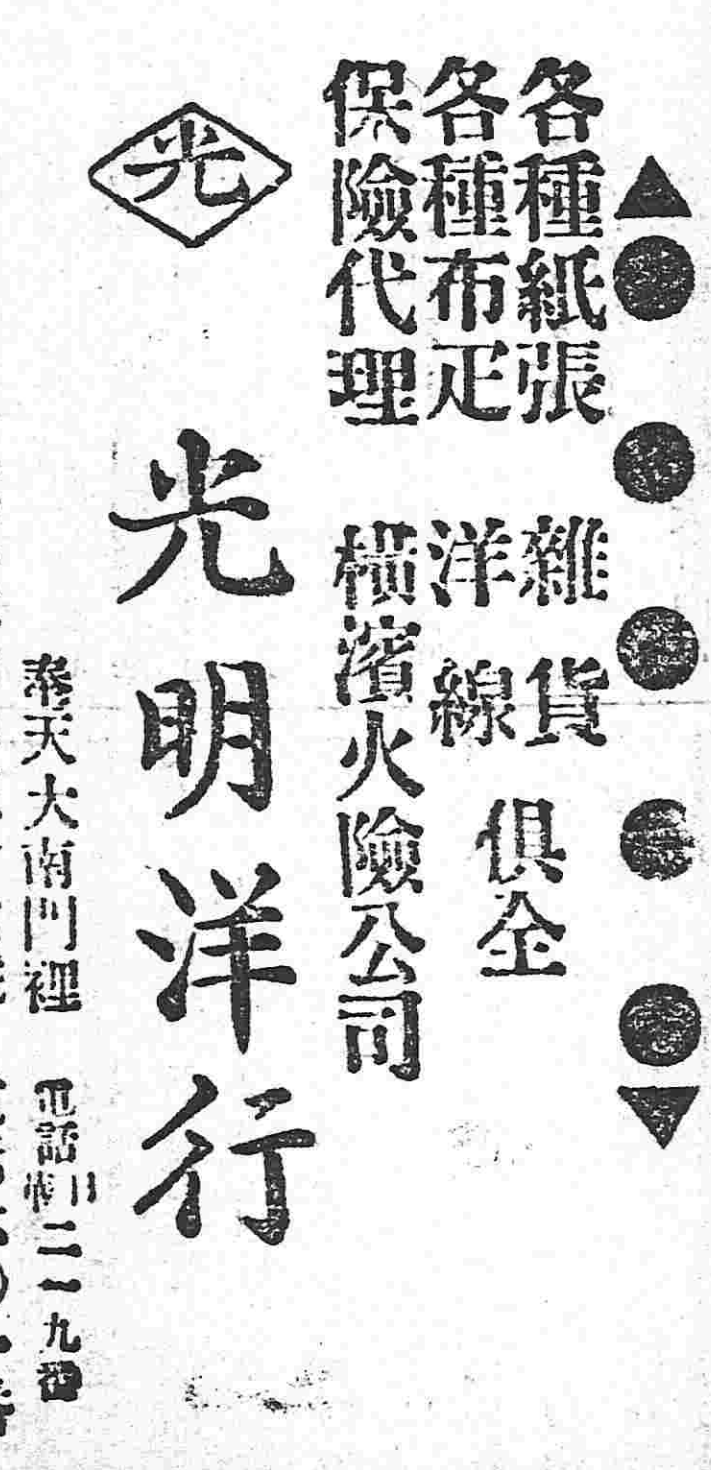 各種紙張 雜貨
各種布疋 洋線
俱全
保險代理 橫濱火險公司
光
光明洋行
奉天大南門裡 電話 二一九番